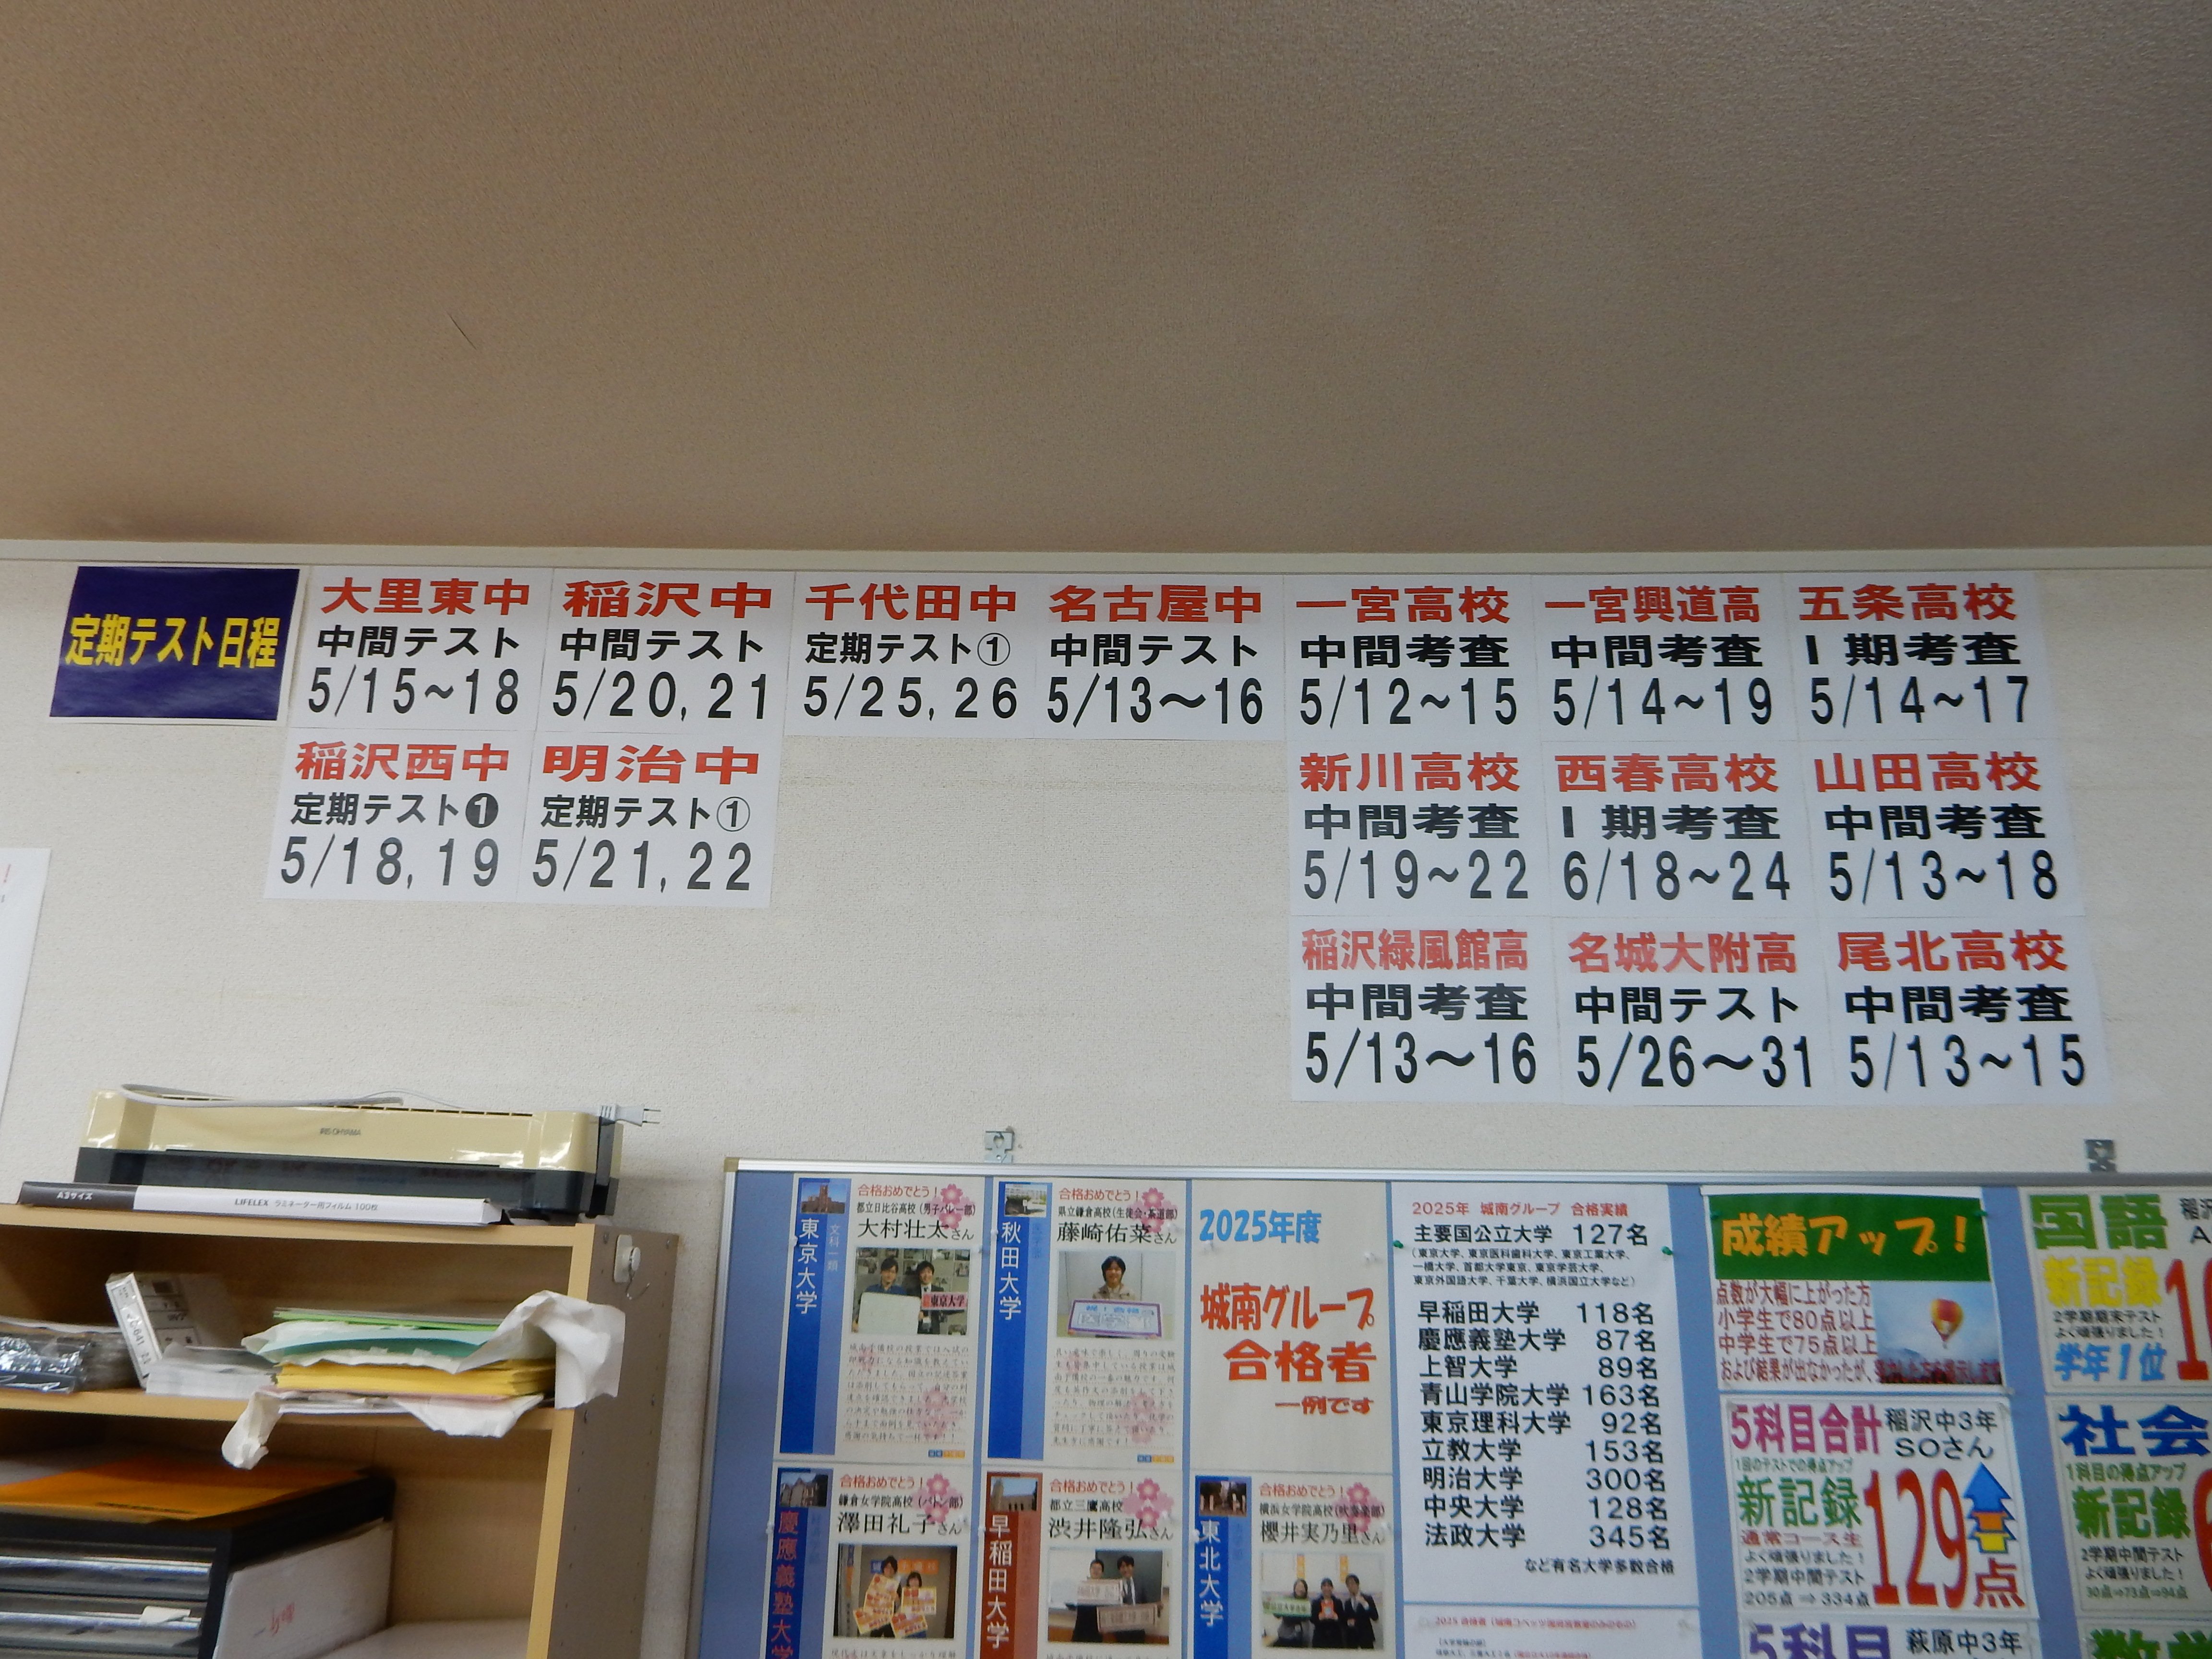 定期テスト日程
大里東中
中間テスト
5/15~18
稲沢中
中間テスト
5/20,21
千代田中
定期テスト①
5/25,26
名古屋中
中間テスト
5/13～16
一宮高校
中間考査
5/12~15
一宮興道高
中間考査
5/14~19
五条高校
Ⅰ期考査
5/14~17
稲沢西中
定期テスト❶
5/18,19
明治中
定期テスト①
5/21,22
新川高校
中間考査
5/19~22
西春高校
Ⅰ期考査
6/18~24
山田高校
中間考査
5/13~18
稲沢緑風館高
中間考査
5/13～16
名城大附高
中間テスト
5/26～31
尾北高校
中間考査
5/13~15
IRIS OHYAMA
A3サイズ
LIFELEX ラミネーター用フィルム 100枚
東京大学
文科一類
合格おめでとう！
都立日比谷高校（男子バレー部）
大村壮太さん
東京大学
秋田大学
合格おめでとう！
県立鎌倉高校（生徒会・茶道部）
藤崎佑菜さん
2025年度
城南グループ
合格者
一例です
2025年 城南グループ 合格実績
主要国公立大学 127名
（東京大学、東京医科歯科大学、東京工業大学、
一橋大学、首都大学東京、東京学芸大学、
東京外国語大学、千葉大学、横浜国立大学など）
早稲田大学 118名
慶應義塾大学 87名
上智大学 89名
青山学院大学 163名
東京理科大学 92名
立教大学 153名
明治大学 300名
中央大学 128名
法政大学 345名
など有名大学多数合格
成績アップ！
点数が大幅に上がった方
小学生で80点以上
中学生で75点以上
および結果が出なかったが、
国語
新記録
2学期期末テスト
よく頑張りました！
学年1位
慶應義塾大学
合格おめでとう！
鎌倉女学院高校（バトン部）
澤田礼子さん
早稲田大学
合格おめでとう！
都立三鷹高校
渋井隆弘さん
東北大学
合格おめでとう！
横浜女学院高校（吹奏楽部）
櫻井実乃里さん
5科目合計
稲沢中3年
SOさん
1回のテストでの得点アップ
新記録
通常コース生
よく頑張りました！
2学期中間テスト
205点⇒334点
129点
社会
1科目の得点アップ
新記録
2学期中間テスト
よく頑張りました！
30点⇒73点⇒94点
5科目
萩原中3年